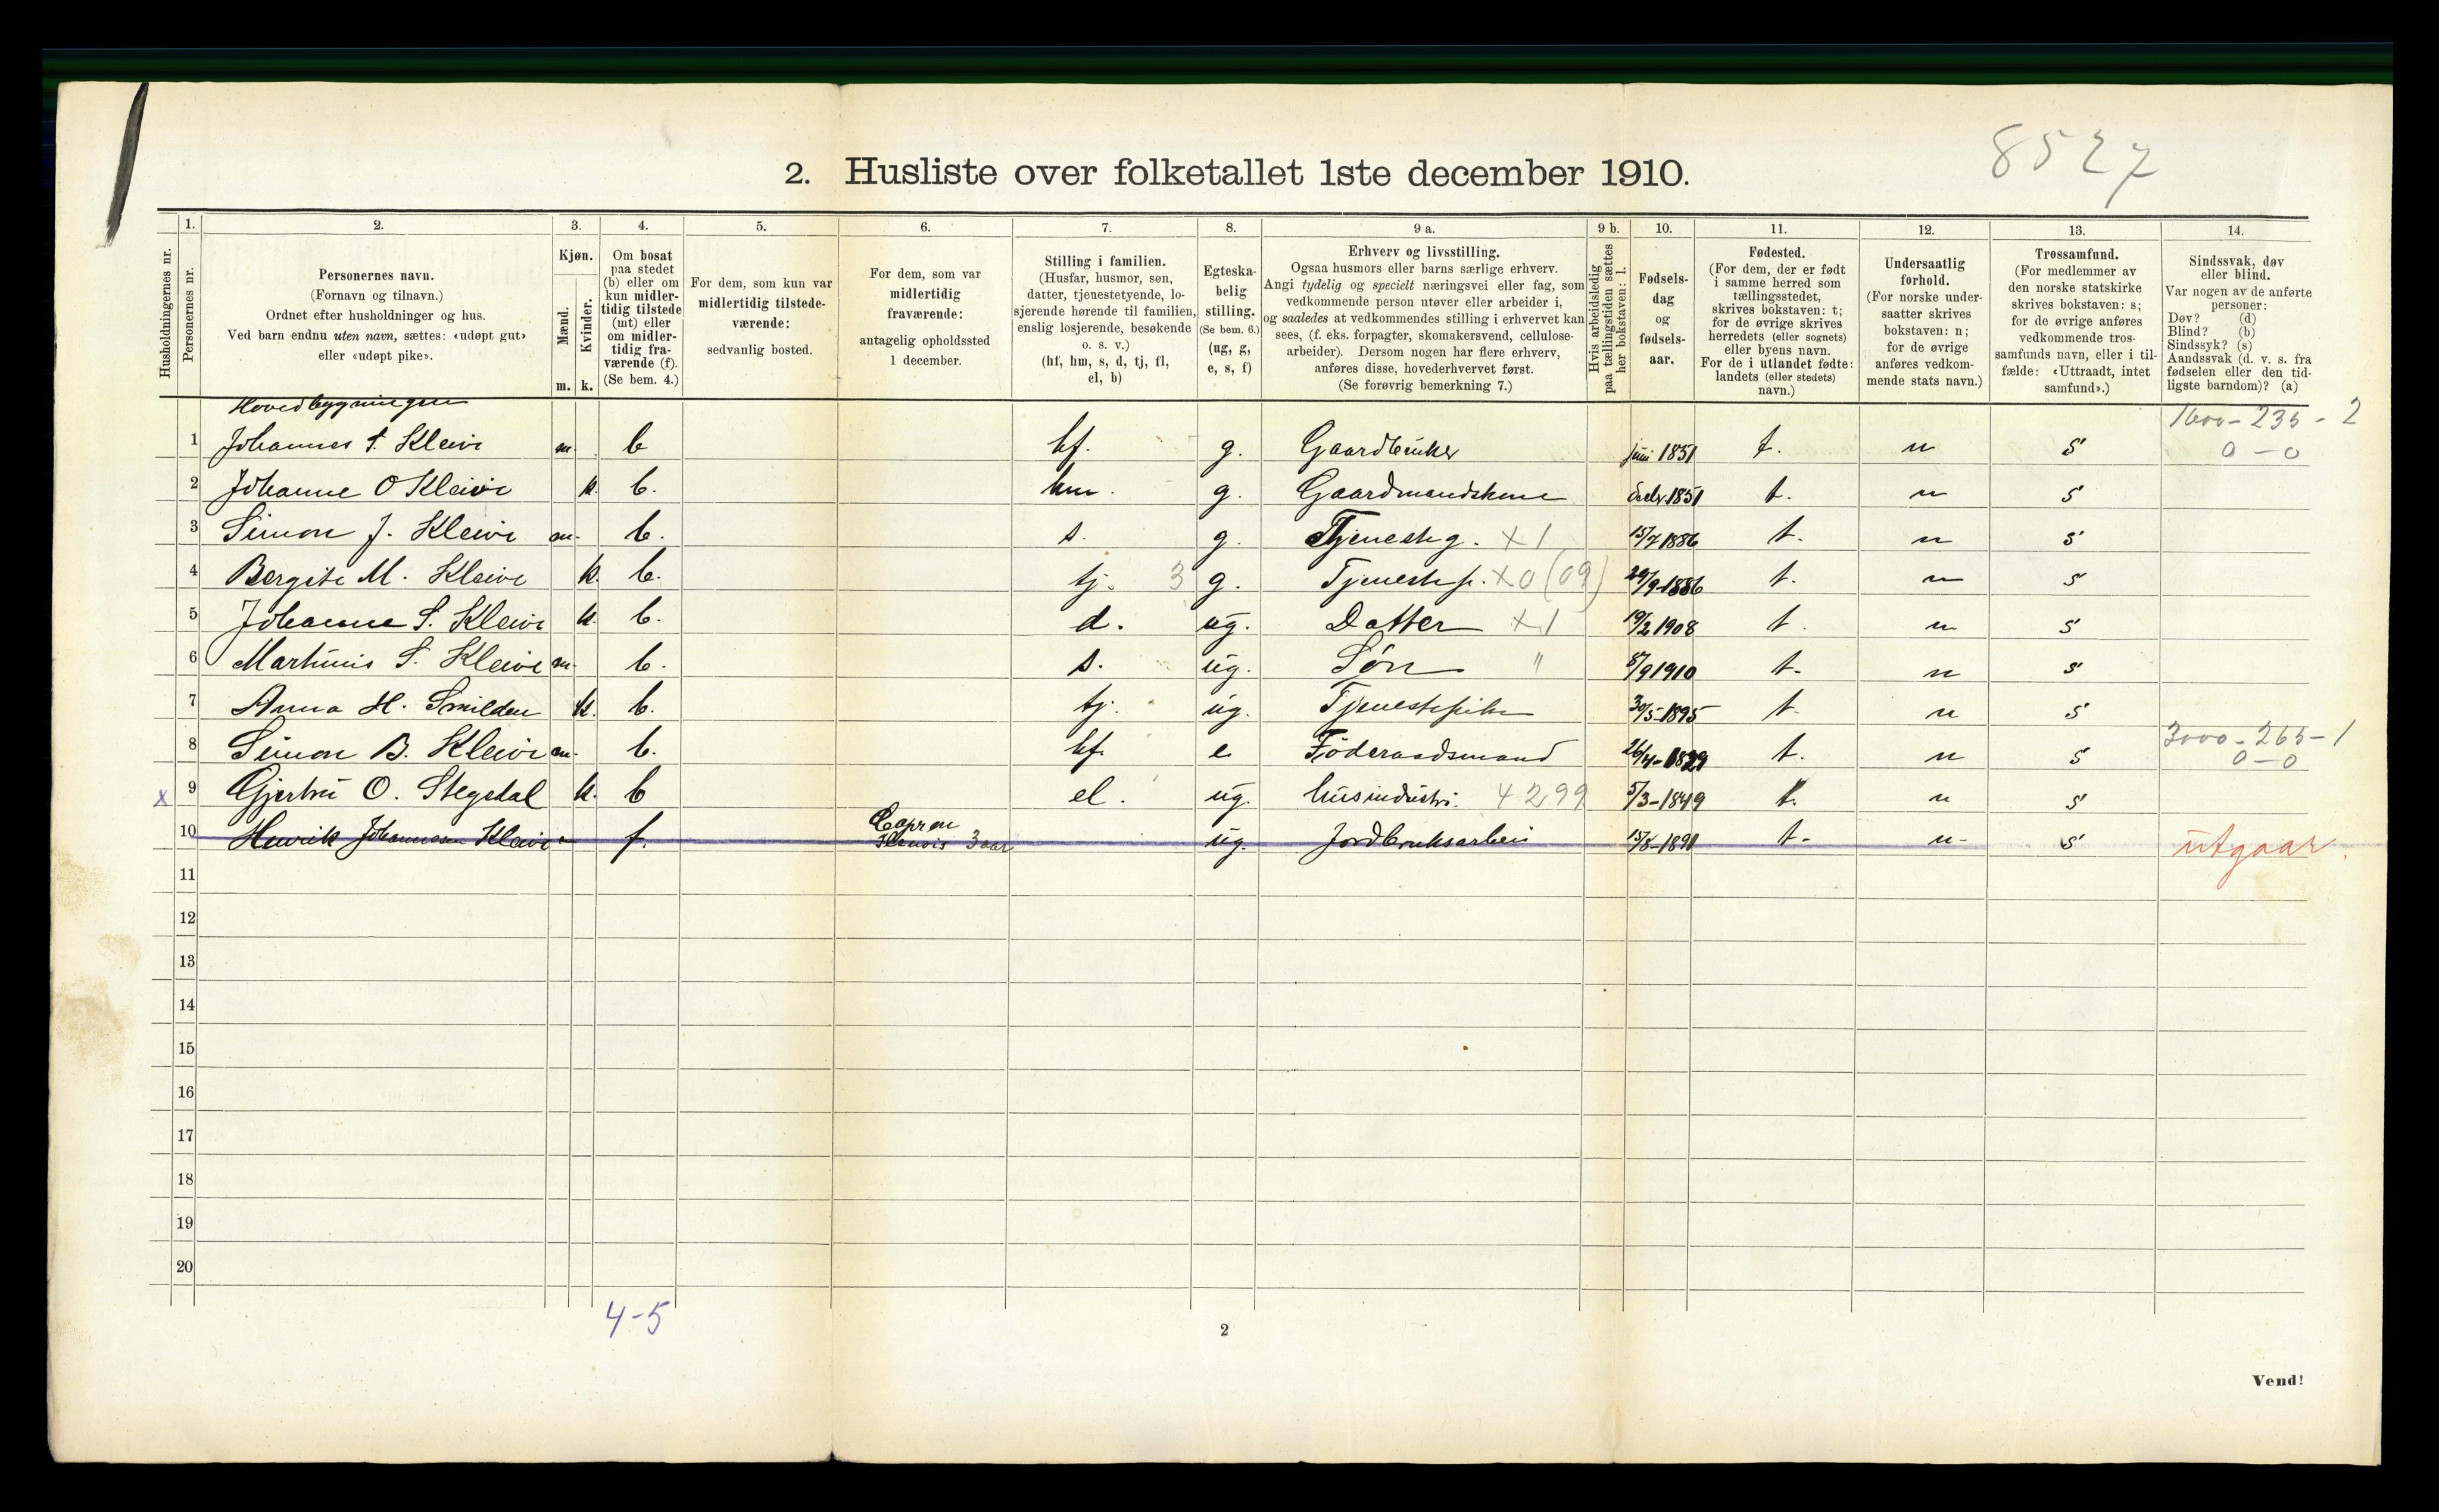 8527
2. Husliste over folketallet 1ste december 1910.
1. 2. 3. 4. 5. 6. 7. 8. 9 a. 9 b. 10. 11. 12. 13. 14.
Husholdningernes nr.
Personernes nr.
Personernes navn.
(Fornavn og tilnavn.)
Ordnet efter husholdninger og hus.
Ved barn endnu uten navn, sættes: «udøpt gut»
eller «udøpt pike».
Kjøn.
Mænd.
Kvinder.
m. k.
Om bosat
paa stedet
(b) eller om
kun midler-
tidig tilstede
(mt) eller
om midler-
tidig fra-
værende (f).
(Se bem. 4.)
For dem, som kun var
midlertidig tilstede-
værende:
sedvanlig bosted.
For dem, som var
midlertidig
fraværende:
antagelig opholdssted
1 december.
Stilling i familien.
(Husfar, husmor, søn,
datter, tjenestetyende, lo-
sjerende hørende til familien,
enslig losjerende, besøkende
o. s. v.)
(hf, hm, s, d, tj, fl,
el, b)
Egteska-
belig
stilling.
(Se bem. 6.)
(ug, g,
e, s, f)
Erhverv og livsstilling.
Ogsaa husmors eller barns særlige erhverv.
Angi tydelig og specielt næringsvei eller fag, som
vedkommende person utøver eller arbeider i,
og saaledes at vedkommendes stilling i erhvervet kan
sees, (f. eks. forpagter, skomakersvend, cellulose-
arbeider). Dersom nogen har flere erhverv,
anføres disse, hovederhvervet først.
(Se forøvrig bemerkning 7.)
Hvis arbeidsledig
paa tællingstiden sættes
her bokstaven: l.
Fødsels-
dag
og
fødsels-
aar.
Fødested.
(For dem, der er født
i samme herred som
tællingsstedet,
skrives bokstaven: t;
for de øvrige skrives
herredets (eller sognets)
eller byens navn.
For de i utlandet fødte:
landets (eller stedets)
navn.)
Undersaatlig
forhold.
(For norske under-
saatter skrives
bokstaven: n;
for de øvrige
anføres vedkom-
mende stats navn.)
Trossamfund.
(For medlemmer av
den norske statskirke
skrives bokstaven: s;
for de øvrige anføres
vedkommende tros-
samfunds navn, eller i til-
fælde: «Uttraadt, intet
samfund».)
Sindssvak, døv
eller blind.
Var nogen av de anførte
personer:
Døv? (d)
Blind? (b)
Sindssyk? (s)
Aandssvak (d. v. s. fra
fødselen eller den tid-
ligste barndom)? (a)
Hovedbygningen
1600 - 235 - 2
1 Johannes S. Kleivi m. b hf. g. Gaardbruker juni 1851 t. n s 0 - 0
2 Johanne O Kleivi k. b. hm. g. Gaardmandskone 1851 t. n s
3 Simon J. Kleivi m. b. s. g. Tjenesteg. x 1 15/7 1886 t. n s
4 Bergite M. Kleivi k. b. tj. 3 g. Tjenestep. x 0 (09) 29/9-1886 t. n s
5 Johanne S. Kleivi k. b. d. ug. Datter x 1 19/2 1908 t. n s
6 Martinus S. Kleivi m. b. s. ug. Søn " 8/9 1910 t. n s
7 Anna H. Smilden k. b. tj. ug. Tjenestepike 30/5-1895 t. n s
3000 - 265 - 1
8 Simon B. Kleivi m. b. hf. e Føderaadsmand 26/4-1829 t. n s 0 - 0
x 9 Gjertru O. Stegdal k. b el. ug. husindustri. 4299 5/3-1849 t. n s
10 Henrik Johannesen Kleivi f. 3 aar ug. Jordbruksarbei 15/8-1891 t. n. s utgaar.
11
12
13
14
15
16
17
18
19
20
4-5
2
Vend!